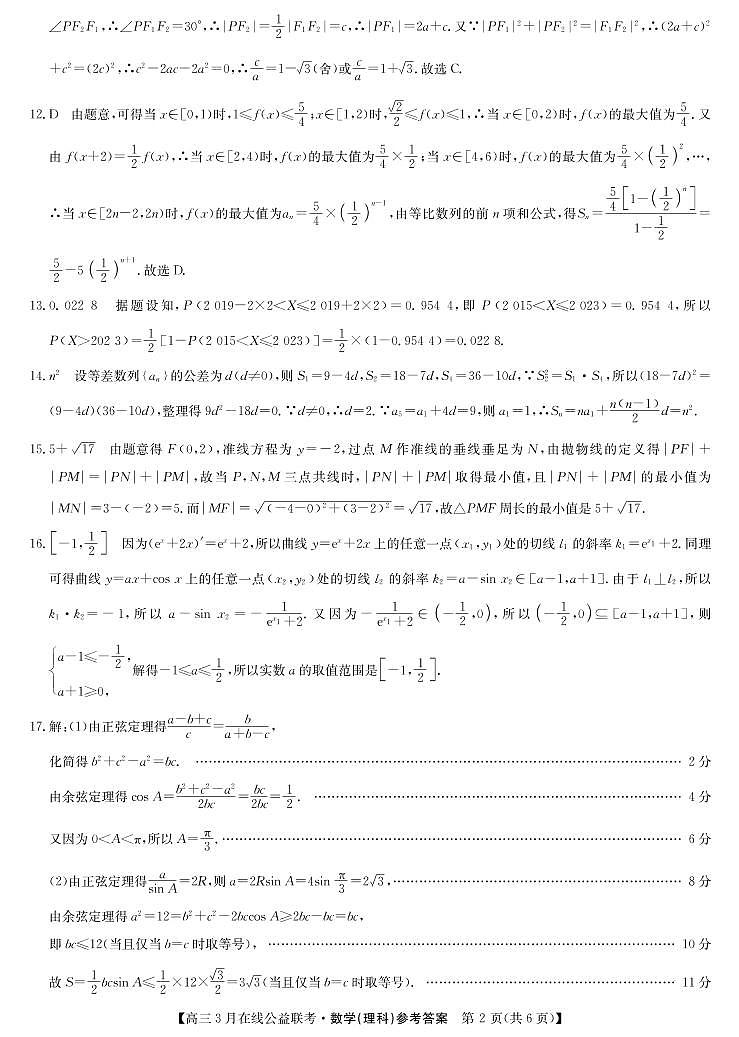 ∠PF₂F₁,∴∠PF₁F₂=30°,∴|PF₂|=1/2|F₁F₂|=c,∴|PF₁|=2a+c.又∵|PF₁|²+|PF₂|²=|F₁F₂|²,∴(2a+c)²
+c²=(2c)²,∴c²-2ac-2a²=0,∴c/a=1-√3(舍)或c/a=1+√3.故选C.
12.D 由题意,可得当x∈[0,1)时,1≤f(x)≤5/4;x∈[1,2)时,√2/2≤f(x)≤1,∴当x∈[0,2)时,f(x)的最大值为5/4.又
由f(x+2)=1/2f(x),∴当x∈[2,4)时,f(x)的最大值为5/4×1/2;当x∈[4,6)时,f(x)的最大值为5/4×(1/2)²,…,
∴当x∈[2n-2,2n)时,f(x)的最大值为aₙ=5/4×(1/2)ⁿ⁻¹,由等比数列的前n项和公式,得Sₙ=(5/4[1-(1/2)ⁿ])/(1-1/2)=
5/2-5(1/2)ⁿ⁺¹.故选D.
13.0.022 8 据题设知,P(2 019-2×2<X≤2 019+2×2)=0.954 4,即P(2 015<X≤2 023)=0.954 4,所以
P(X>202 3)=1/2[1-P(2 015<X≤2 023)]=1/2×(1-0.954 4)=0.022 8.
14.n² 设等差数列{aₙ}的公差为d(d≠0),则S₁=9-4d,S₂=18-7d,S₄=36-10d,∵S₂²=S₁·S₄,所以(18-7d)²=
(9-4d)(36-10d),整理得9d²-18d=0.∵d≠0,∴d=2.∵a₅=a₁+4d=9,则a₁=1,∴Sₙ=na₁+n(n-1)/2 d=n².
15.5+√17 由题意得F(0,2),准线方程为y=-2,过点M作准线的垂线垂足为N,由抛物线的定义得|PF|+
|PM|=|PN|+|PM|,故当P,N,M三点共线时,|PN|+|PM|取得最小值,且|PN|+|PM|的最小值为
|MN|=3-(-2)=5.而|MF|=√((-4-0)²+(3-2)²)=√17,故△PMF周长的最小值是5+√17.
16.[-1,1/2] 因为(eˣ+2x)′=eˣ+2,所以曲线y=eˣ+2x上的任意一点(x₁,y₁)处的切线l₁的斜率k₁=e^(x₁)+2.同理
可得曲线y=ax+cos x上的任意一点(x₂,y₂)处的切线l₂的斜率k₂=a-sin x₂∈[a-1,a+1].由于l₁⊥l₂,所以
k₁·k₂=-1,所以a-sin x₂=-1/(e^(x₁)+2).又因为-1/(e^(x₁)+2)∈(-1/2,0),所以(-1/2,0)⊆[a-1,a+1],则
{a-1≤-1/2, a+1≥0, 解得-1≤a≤1/2,所以实数a的取值范围是[-1,1/2].
17.解:(1)由正弦定理得(a-b+c)/c=b/(a+b-c),
化简得b²+c²-a²=bc. …………………………………… 2分
由余弦定理得cos A=(b²+c²-a²)/2bc=bc/2bc=1/2. …………………………………… 4分
又因为0<A<π,所以A=π/3. …………………………………… 6分
(2)由正弦定理得a/sin A=2R,则a=2Rsin A=4sin π/3=2√3, …………………………………… 8分
由余弦定理得a²=12=b²+c²-2bccos A≥2bc-bc=bc,
即bc≤12(当且仅当b=c时取等号), …………………………………… 10分
故S=1/2bcsin A≤1/2×12×√3/2=3√3(当且仅当b=c时取等号). …………………………………… 11分
【高三3月在线公益联考·数学(理科)参考答案 第2页(共6页)】